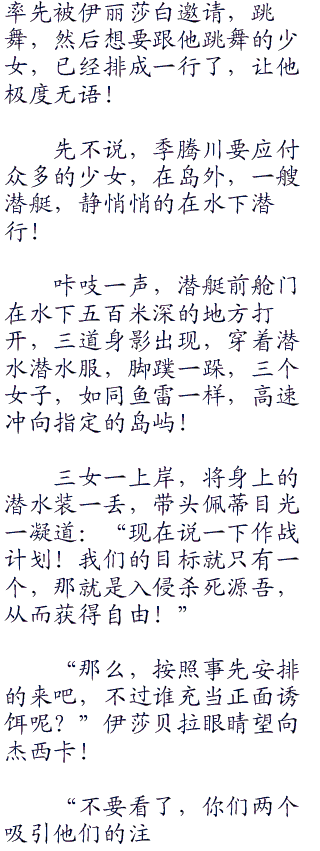 率先被伊丽莎白邀请，跳
舞，然后想要跟他跳舞的少
女，已经排成一行了，让他
极度无语！
先不说，季腾川要应付
众多的少女，在岛外，一艘
潜艇，静悄悄的在水下潜
行！
咔吱一声，潜艇前舱门
在水下五百米深的地方打
开，三道身影出现，穿着潜
水潜水服，脚蹼一跺，三个
女子，如同鱼雷一样，高速
冲向指定的岛屿！
三女一上岸，将身上的
潜水装一丢，带头佩蒂目光
一凝道：“现在说一下作战
计划！我们的目标就只有一
个，那就是入侵杀死源吾，
从而获得自由！”
“那么，按照事先安排
的来吧，不过谁充当正面诱
饵呢？”伊莎贝拉眼睛望向
杰西卡！
“不要看了，你们两个
吸引他们的注